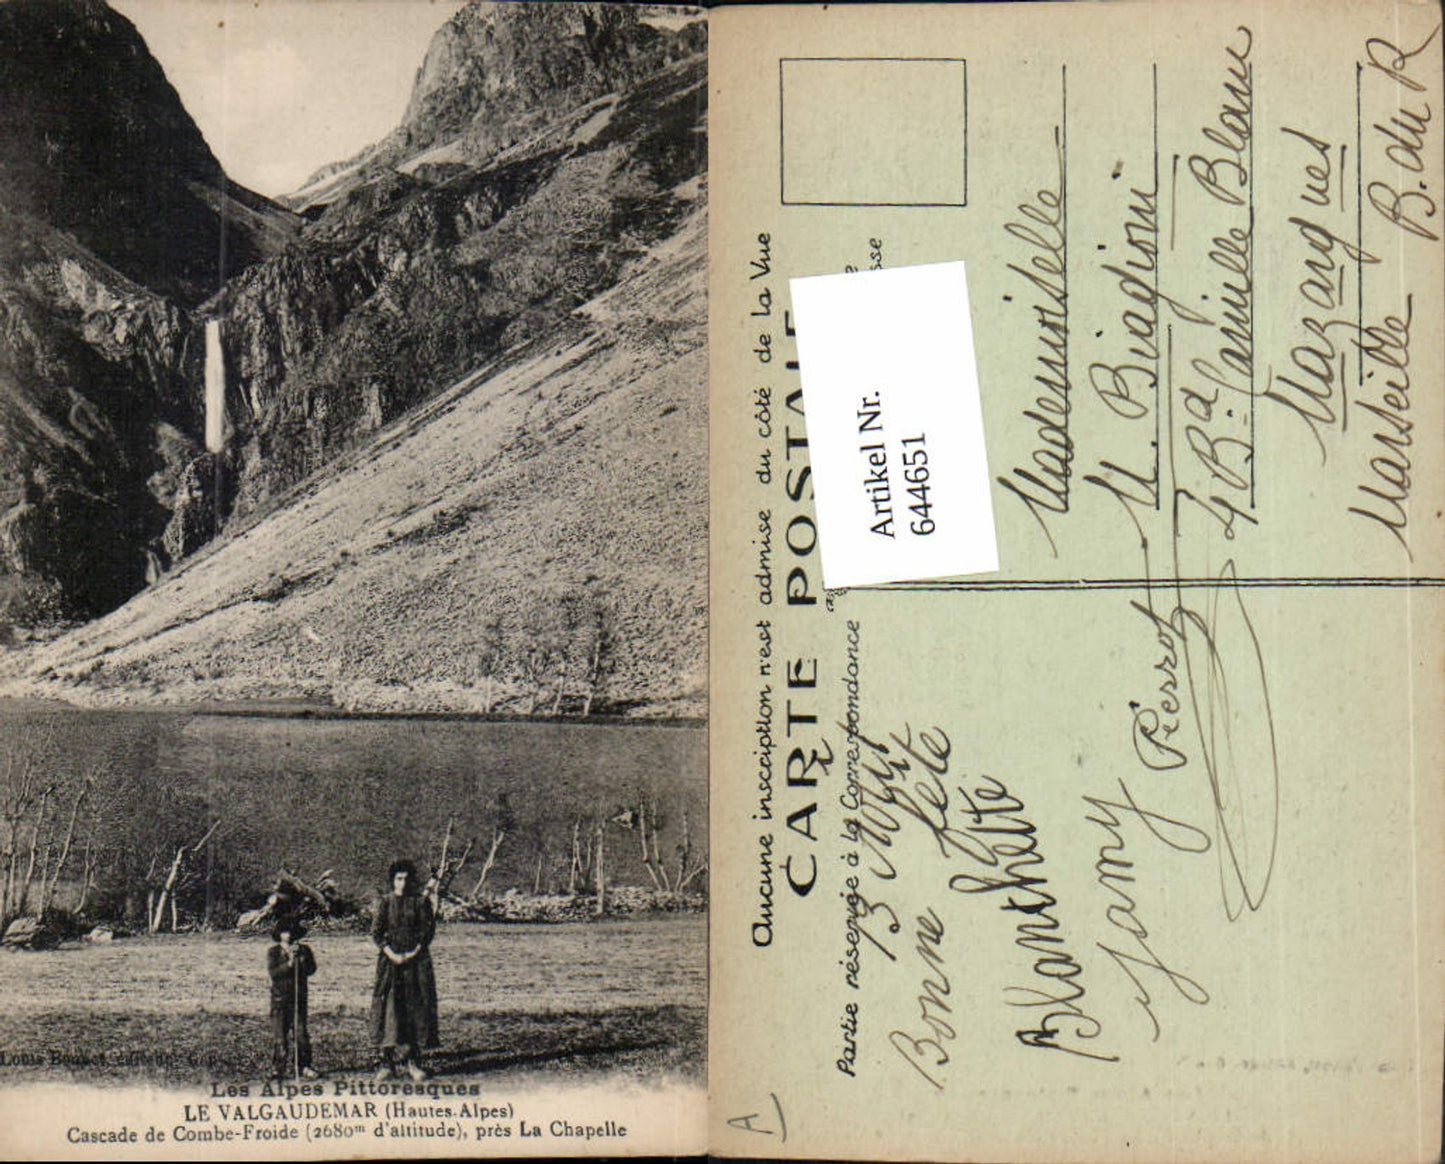 Louis Bonnet, éditeur, Gap
Les Alpes Pittoresques
LE VALGAUDEMAR (Hautes-Alpes)
Cascade de Combe-Froide (2680m d'altitude), près La Chapelle
Aucune inscription n'est admise du côté de la Vue
CARTE POSTALE
Partie réservée à la Correspondance
sse
Artikel Nr.
644651
Bonne fête
Blanchette
Jamy
Pierrot
Mademoiselle
M. Biagioni
4 Bd. Camille Blanc
Mazargues
Marseille B. du R
A